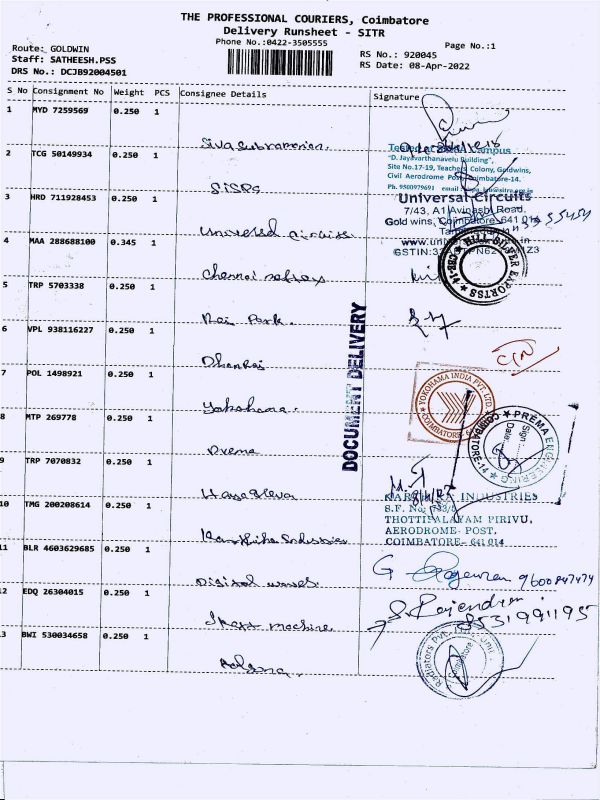 THE PROFESSIONAL COURIERS, Coimbatore
Delivery Runsheet - SITR
Phone No.:0422-3505555
Page No.:1
Route: GOLDWIN
Staff: SATHEESH.PSS
DRS No.: DCJB92004501
RS No.: 920045
RS Date: 08-Apr-2022
S No Consignment No Weight PCS Consignee Details Signature
1 MYD 7259569 0.250 1
Siva Subramanian.
2 TCG 50149934 0.250 1
Campus
"D. Jayavarthanavelu Building",
Site No.17-19, Teachers Colony, Goldwins,
Civil Aerodrome Post, Coimbatore-14.
Ph. 9500979691 email
SiSPS
3 HRD 711928453 0.250 1
Universal Circuits
7/43, A1 Avinashi Road,
Gold wins, Coimbatore-641 014
Universal circuits
4 MAA 288688100 0.345 1
GSTIN:33
SILVER EXPORTSS
Chennai
5 TRP 5703338 0.250 1
Park.
6 VPL 938116227 0.250 1
DOCUMENT DELIVERY
7 POL 1498921 0.250 1
YOKOHAMA INDIA PVT LTD
COIMBATORE
Yokohama.
8 MTP 269778 0.250 1
PREMA ENGINEERING
Sign
Date
COIMBATORE-14
Prema
9 TRP 7070832 0.250 1
10 TMG 200208614 0.250 1
INDUSTRIES
S.F. No. 733/5
THOTTIPALAYAM PIRIVU,
AERODROME- POST,
COIMBATORE- 641 014
Karthika Industries
11 BLR 4603629685 0.250 1
G
9600847474
Digital waves.
12 EDQ 26304015 0.250 1
S. Rajendran
8531991195
machine
13 BWI 530034658 0.250 1
Radiators Pvt. Ltd. Unit
Coimbatore